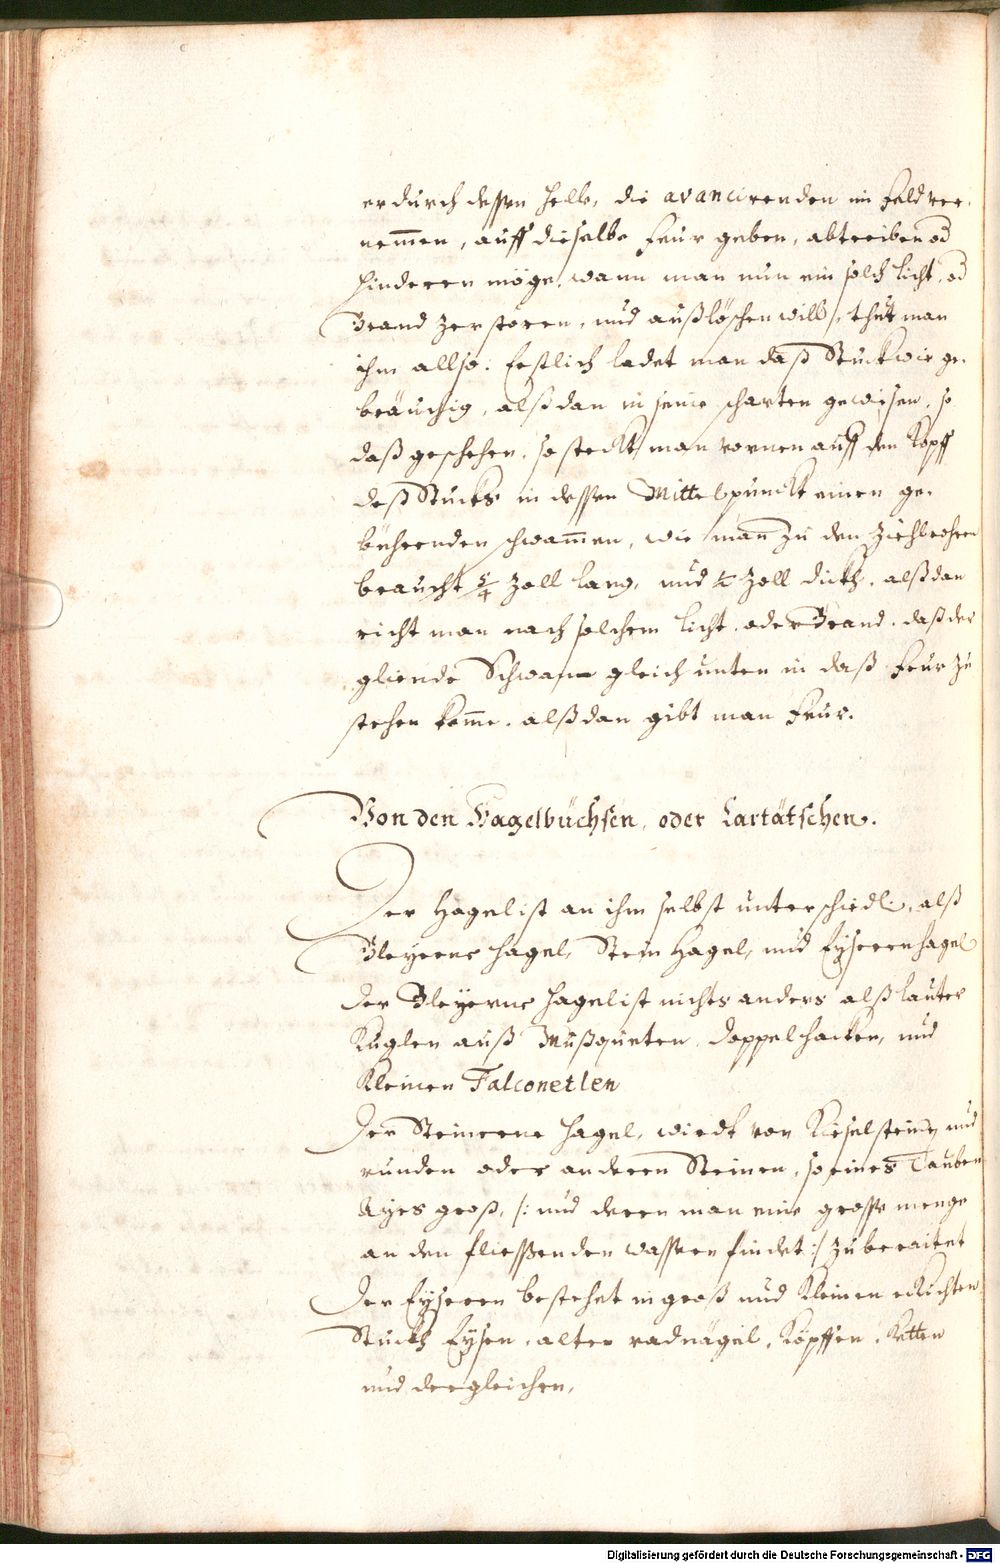 er durch dessen helle, die avancirenden im Feld ver-
nem̄en, auff dieselbe Feur geben, abtreiben od
hinderen möge. wann man nun ein solch licht, od
Brand zerstören, und außlöschen will, thut man
ihm allso: Erstlich ladet man daß Stuckh wie ge-
bräuchig, alß dan in seine scharten gewisen, so
daß geschehen, so steckt man vornen auff den Kopff
deß Stucks in dessen Mittelpunckt einen ge-
bührenden schwam̄en, wie man zu den Ziehlrohren
braucht 5/4 Zoll lang, und ¼ Zoll dickh. alß dan
richt man nach solchem licht, oder Brand, daß der
gliende Schwam gleich unten in daß Feur zu
stehen kom̄e. alß dan gibt man Feur.
Von den Hagelbüchsen, oder Cartätschen.
Der Hagel ist an ihm selbst unterschiedl:, alß
Bleyerne hagel, Stein Hagel, und Eyseren hagel
der Bleyerne hagel ist nichts anders alß lauter
Kuglen auß Mußqueten, doppelhacken, und
Kleinen Falconetlen
Der Steinerne hagel, wirdt von Kieselsteine, und
runden oder anderen Steinen, so eines Tauben
Ayes groß, /: und deren man eine grosse menge
an den fliessenden wassern findet :/ zuberaitet
Der Eyseren bestehet in groß und Kleinen eckichten
Stuckh Eysen, alter radnägel, Köpffen, Ketten
und dergleichen,
Digitalisierung gefördert durch die Deutsche Forschungsgemeinschaft - DFG